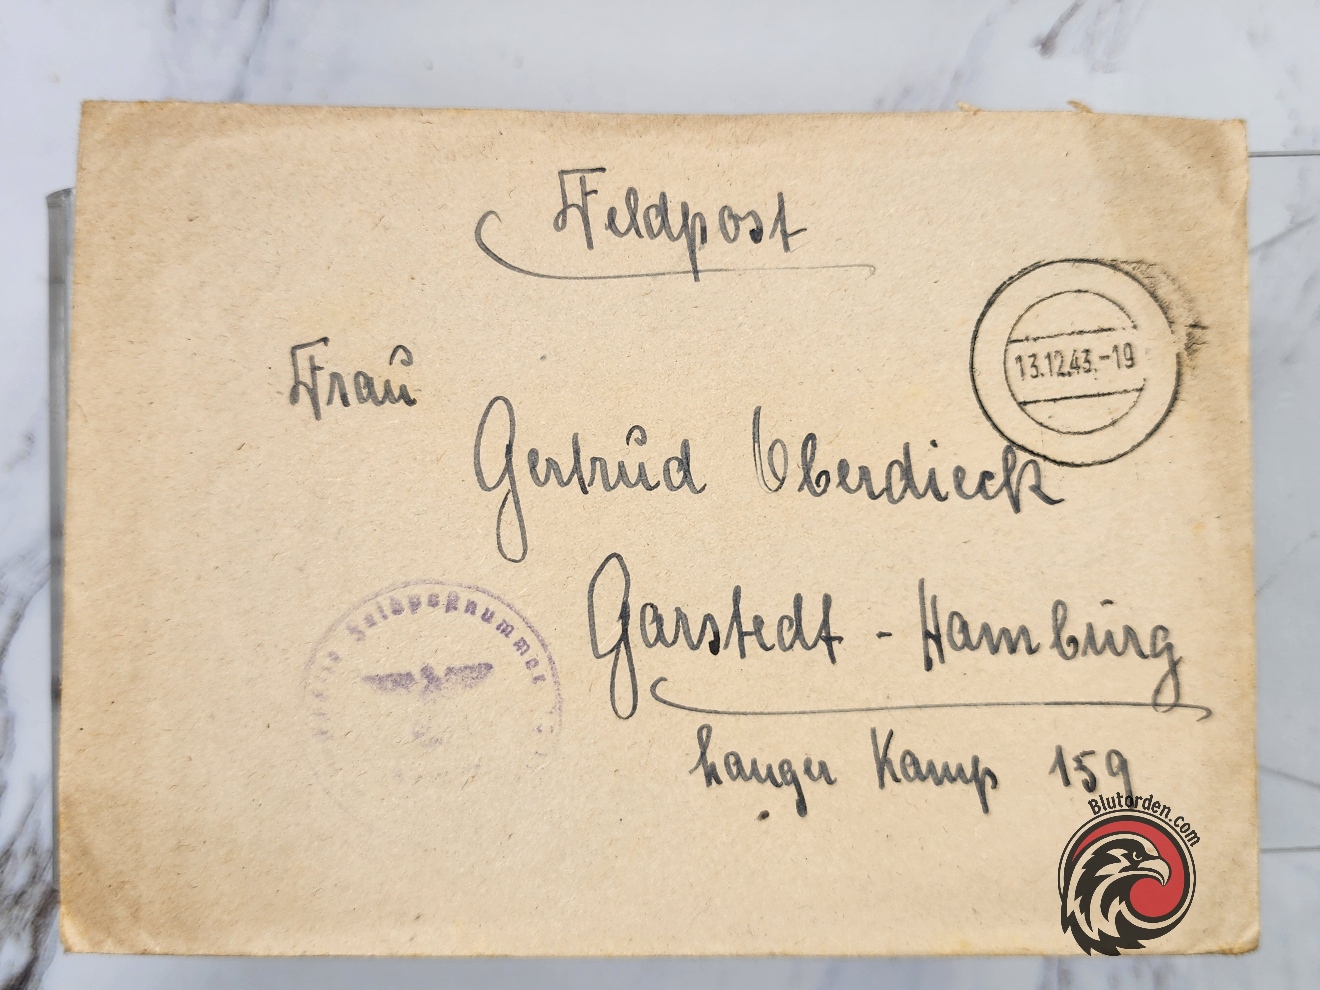 Feldpost
13.12.43.-19
Frau
Gertrud Oberdieck
Garstedt - Hamburg
Feldpostnummer
Langer Kamp 159
Blutorden.com